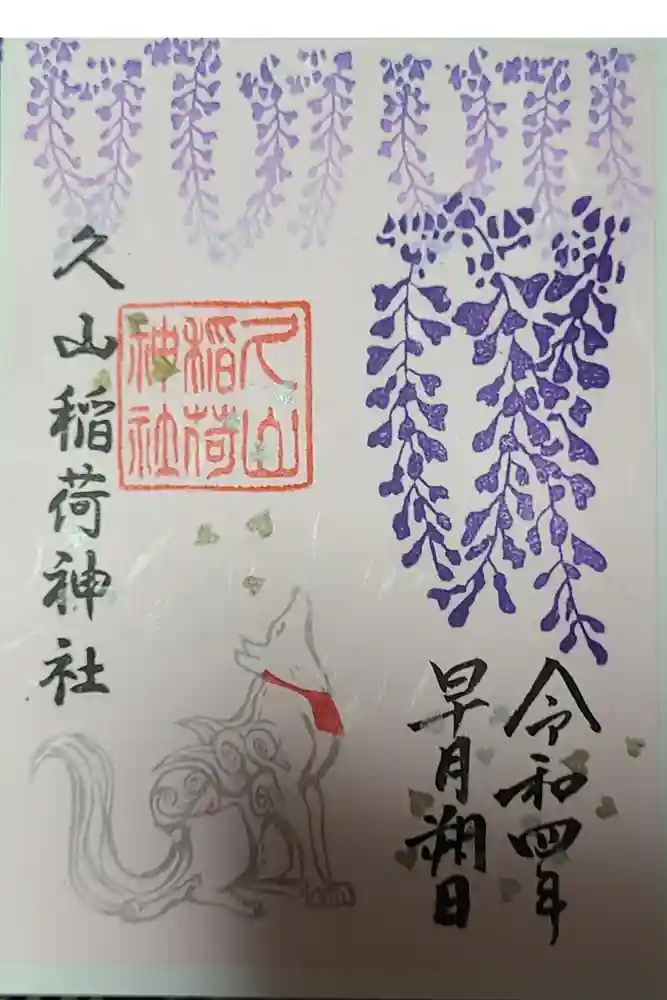 令和四年
早月朔日
久山
稲荷
神社
久山稲荷神社